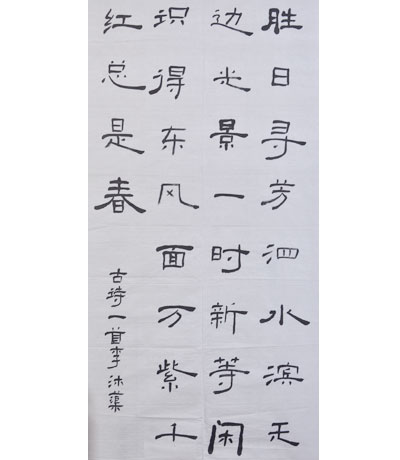 胜日寻芳泗水滨无
边光景一时新等闲
识得东风面万紫千
红总是春
古诗一首李沐